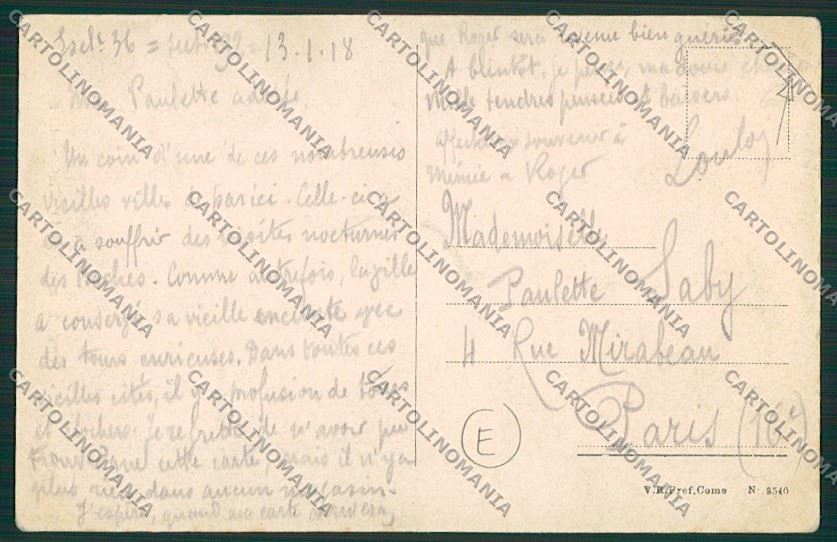 13.1.18
Paulette adorée,
Un coin d'une de ces nombreuses
vieilles villes par ici. Celle-ci a
eu à souffrir des visites nocturnes
des Boches. Comme autrefois,
a conservé sa vieille enceinte avec
des tours curieuses. Dans toutes ces
vieilles cités, il y a profusion de tours
et clochers. Je regrette de n'avoir pu
trouver que cette carte, mais il n'y a
plus rien dans aucun magasin.
J'espère, quand ma carte arrivera,
que Roger sera revenu bien guéri.
A bientôt, je pense, ma chérie et
mille tendres pensées & baisers.
souvenir à
Mimie & Roger
Loulou
Mademoiselle
Paulette Saby
4 Rue Mirabeau
Paris (16e)
E
V. R. Pref. Como N. 8540
CARTOLINOMANIA